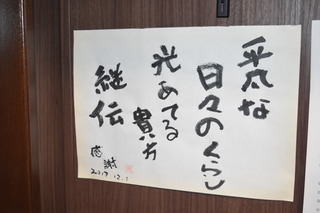 平凡な
日々のくらし
光あてる
貴方
継伝
感謝
2017.12.1